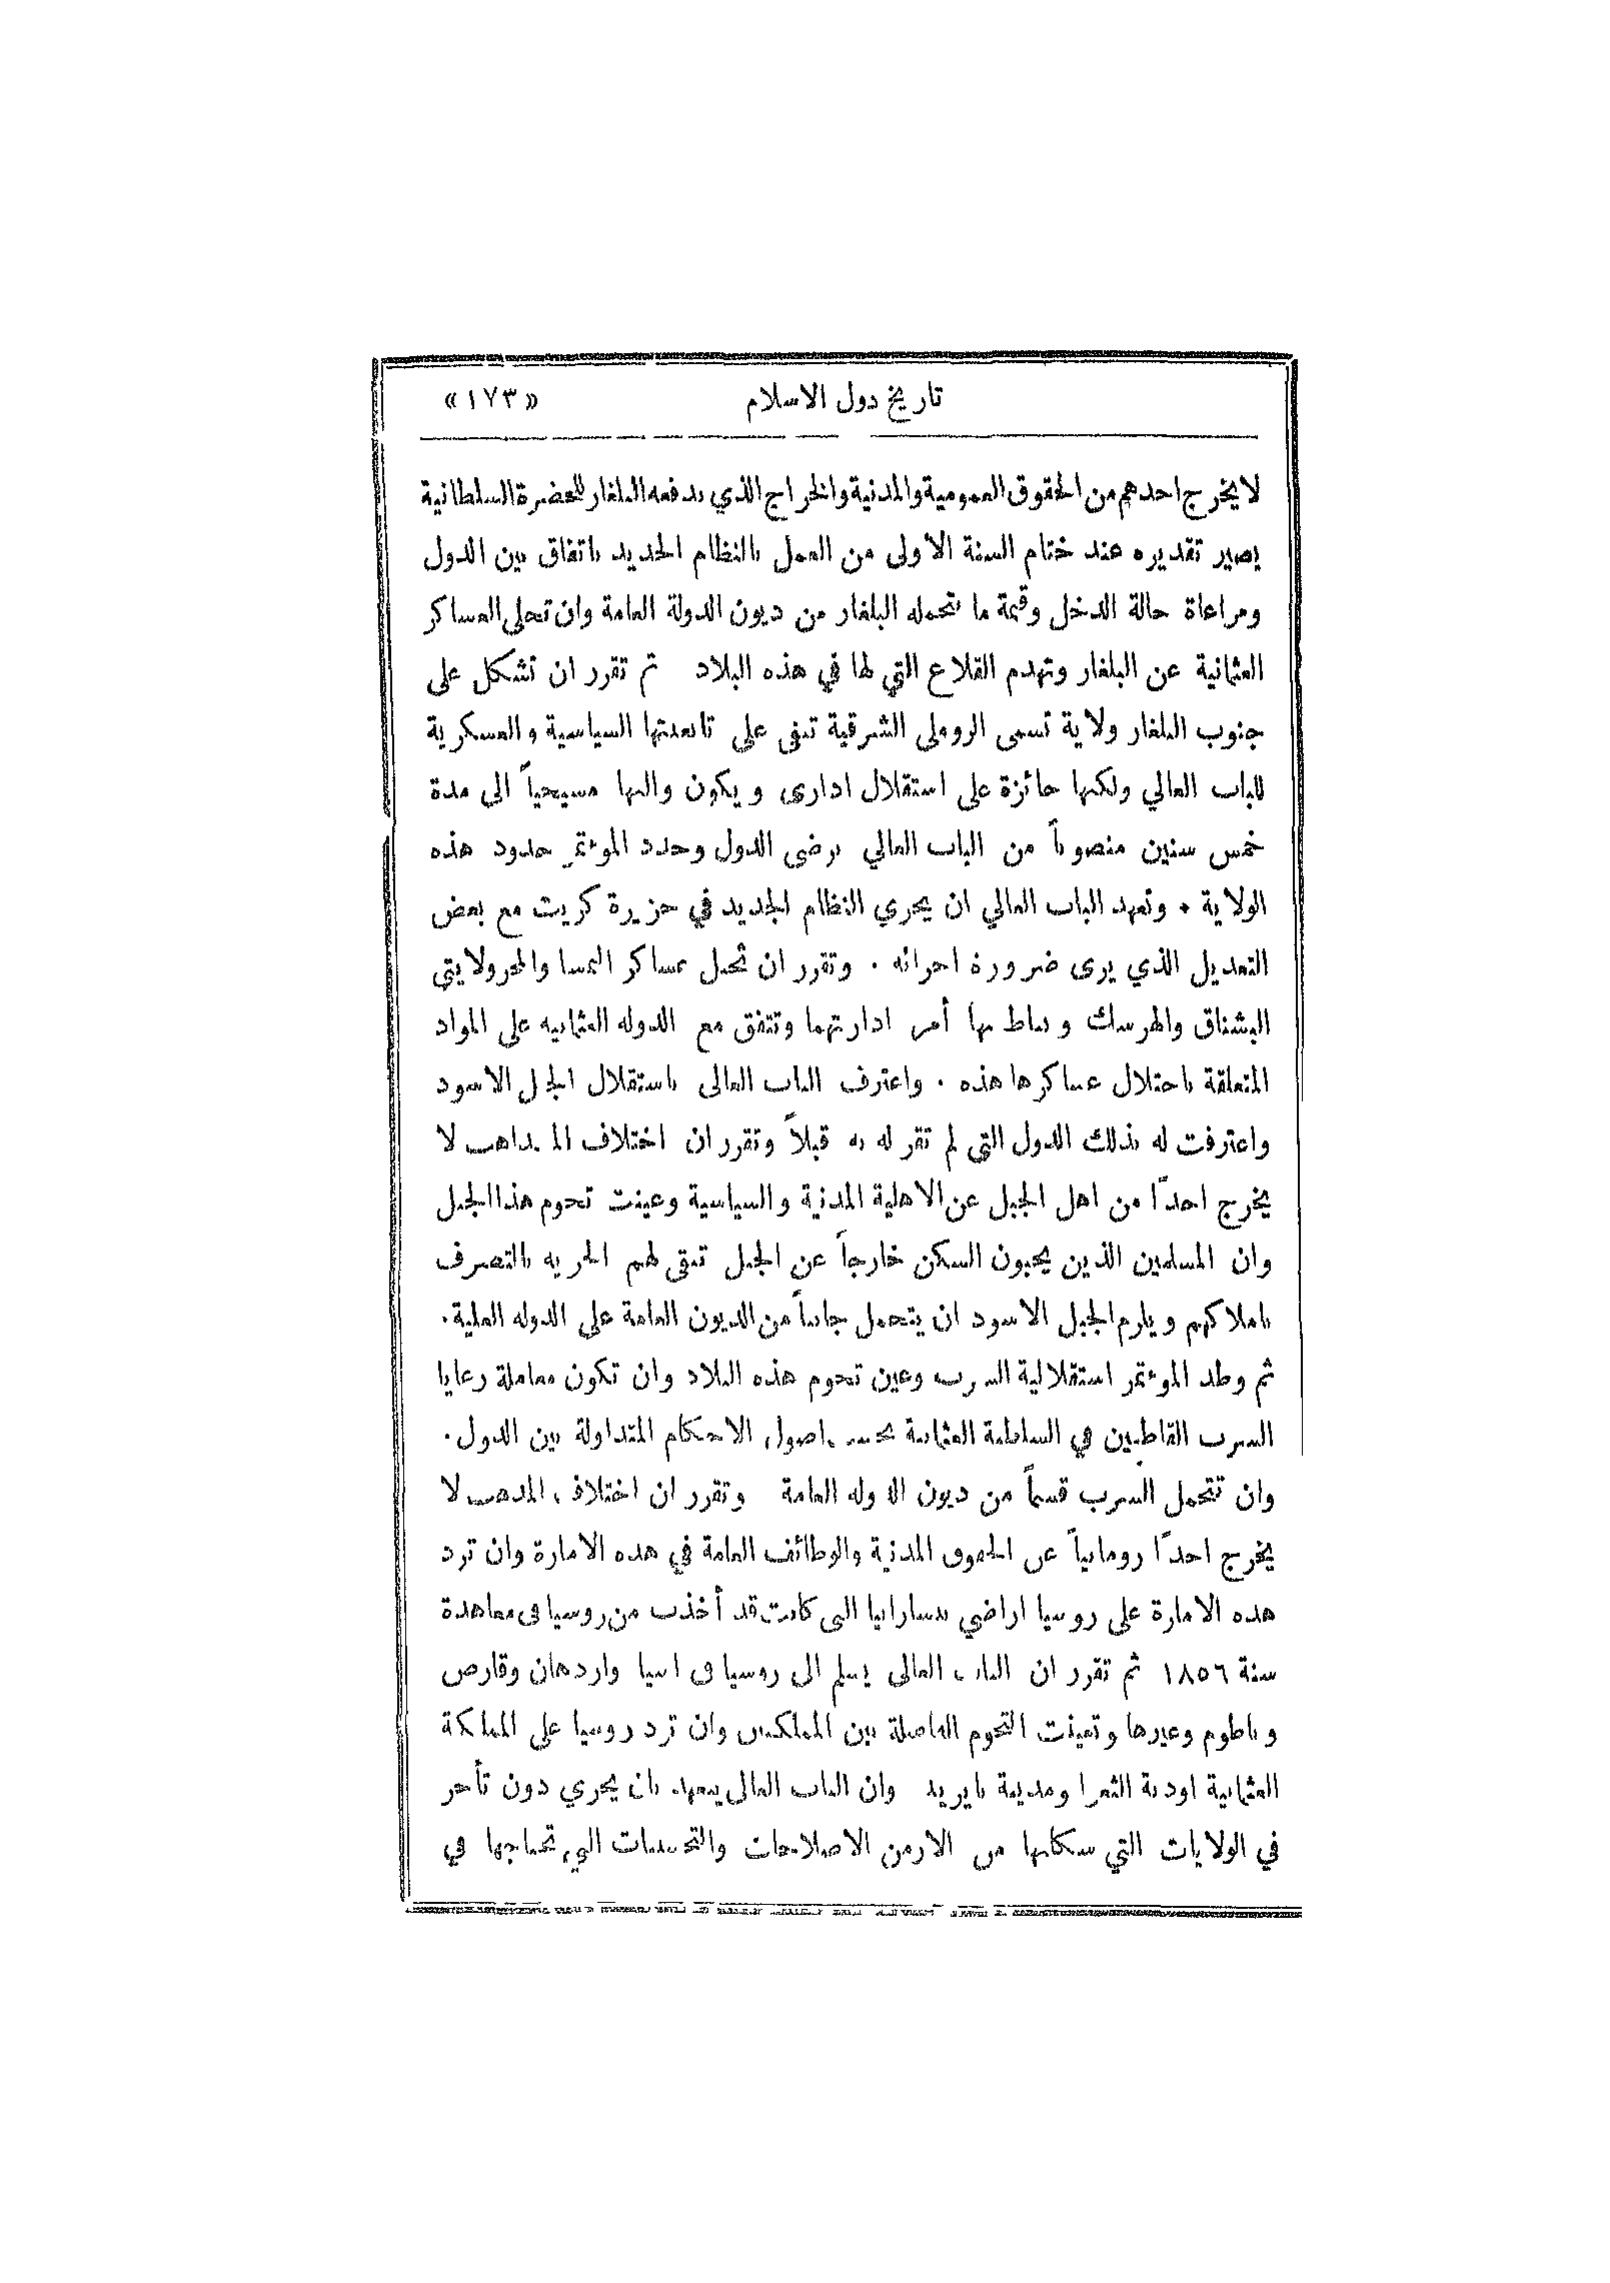 تاريخ دول الاسلام «١٧٣»
لا يخرج احدهم من الحقوق العمومية والمدنية والخراج الذي يدفعه البلغار للحضرة السلطانية
يصير تقديره عند ختام السنة الاولى من العمل بالنظام الجديد باتفاق بين الدول
ومراعاة حالة الدخل وقيمة ما تحمله البلغار من ديون الدولة العامة وان تخلي العساكر
العثمانية عن البلغار وتهدم القلاع التي لها في هذه البلاد ثم تقرر ان تشكل على
جنوب البلغار ولاية تسمى الروملي الشرقية تبقى على تابعيتها السياسية والعسكرية
للباب العالي ولكنها حائزة على استقلال اداري ويكون واليها مسيحياً الى مدة
خمس سنين منصوباً من الباب العالي برضى الدول وحدد المؤتمر حدود هذه
الولاية • وتعهد الباب العالي ان يجري النظام الجديد في جزيرة كريت مع بعض
التعديل الذي يرى ضرورة اجرائه . وتقرر ان تحتل عساكر النمسا والمجر ولايتي
البشناق والهرسك ويناط بها أمر ادارتهما وتتفق مع الدوله العثمانيه على المواد
المتعلقة باحتلال عساكرها هذه . واعترف الباب العالى باستقلال الجبل الاسود
واعترفت له بذلك الدول التي لم تقر له به قبلاً وتقرر ان اختلاف المذاهب لا
يخرج احداً من اهل الجبل عن الاهلية المدنية والسياسية وعينت تخوم هذا الجبل
وان المسلمين الذين يحبون السكن خارجاً عن الجبل تبقى لهم الحريه بالتصرف
باملاكهم ويلزم الجبل الاسود ان يتحمل جانباً من الديون العامة على الدوله العلية.
ثم وطد المؤتمر استقلالية السرب وعين تخوم هذه البلاد وان تكون معاملة رعايا
السرب القاطنين في السلطنة العثمانية بحسب اصول الاحكام المتداولة بين الدول.
وان تتحمل السرب قسماً من ديون الدوله العامة وتقرر ان اختلاف المذهب لا
يخرج احداً رومانياً عن الحقوق المدنية والوظائف العامة في هذه الامارة وان ترد
هذه الامارة على روسيا اراضي بسارابيا التى كانت قد أخذت من روسيا فى معاهدة
سنة ١٨٥٦ ثم تقرر ان الباب العالى يسلم الى روسيا فى اسيا واردهان وقارص
وباطوم وغيرها وتعينت التخوم الفاصلة بين المملكتين وان ترد روسيا على المملكة
العثمانية اودية الشغرا ومدينة بايزيد وان الباب العالى يتعهد بان يجري دون تأخر
في الولايات التي سكانها من الارمن الاصلاحات والتحسينات التي تحتاجها في